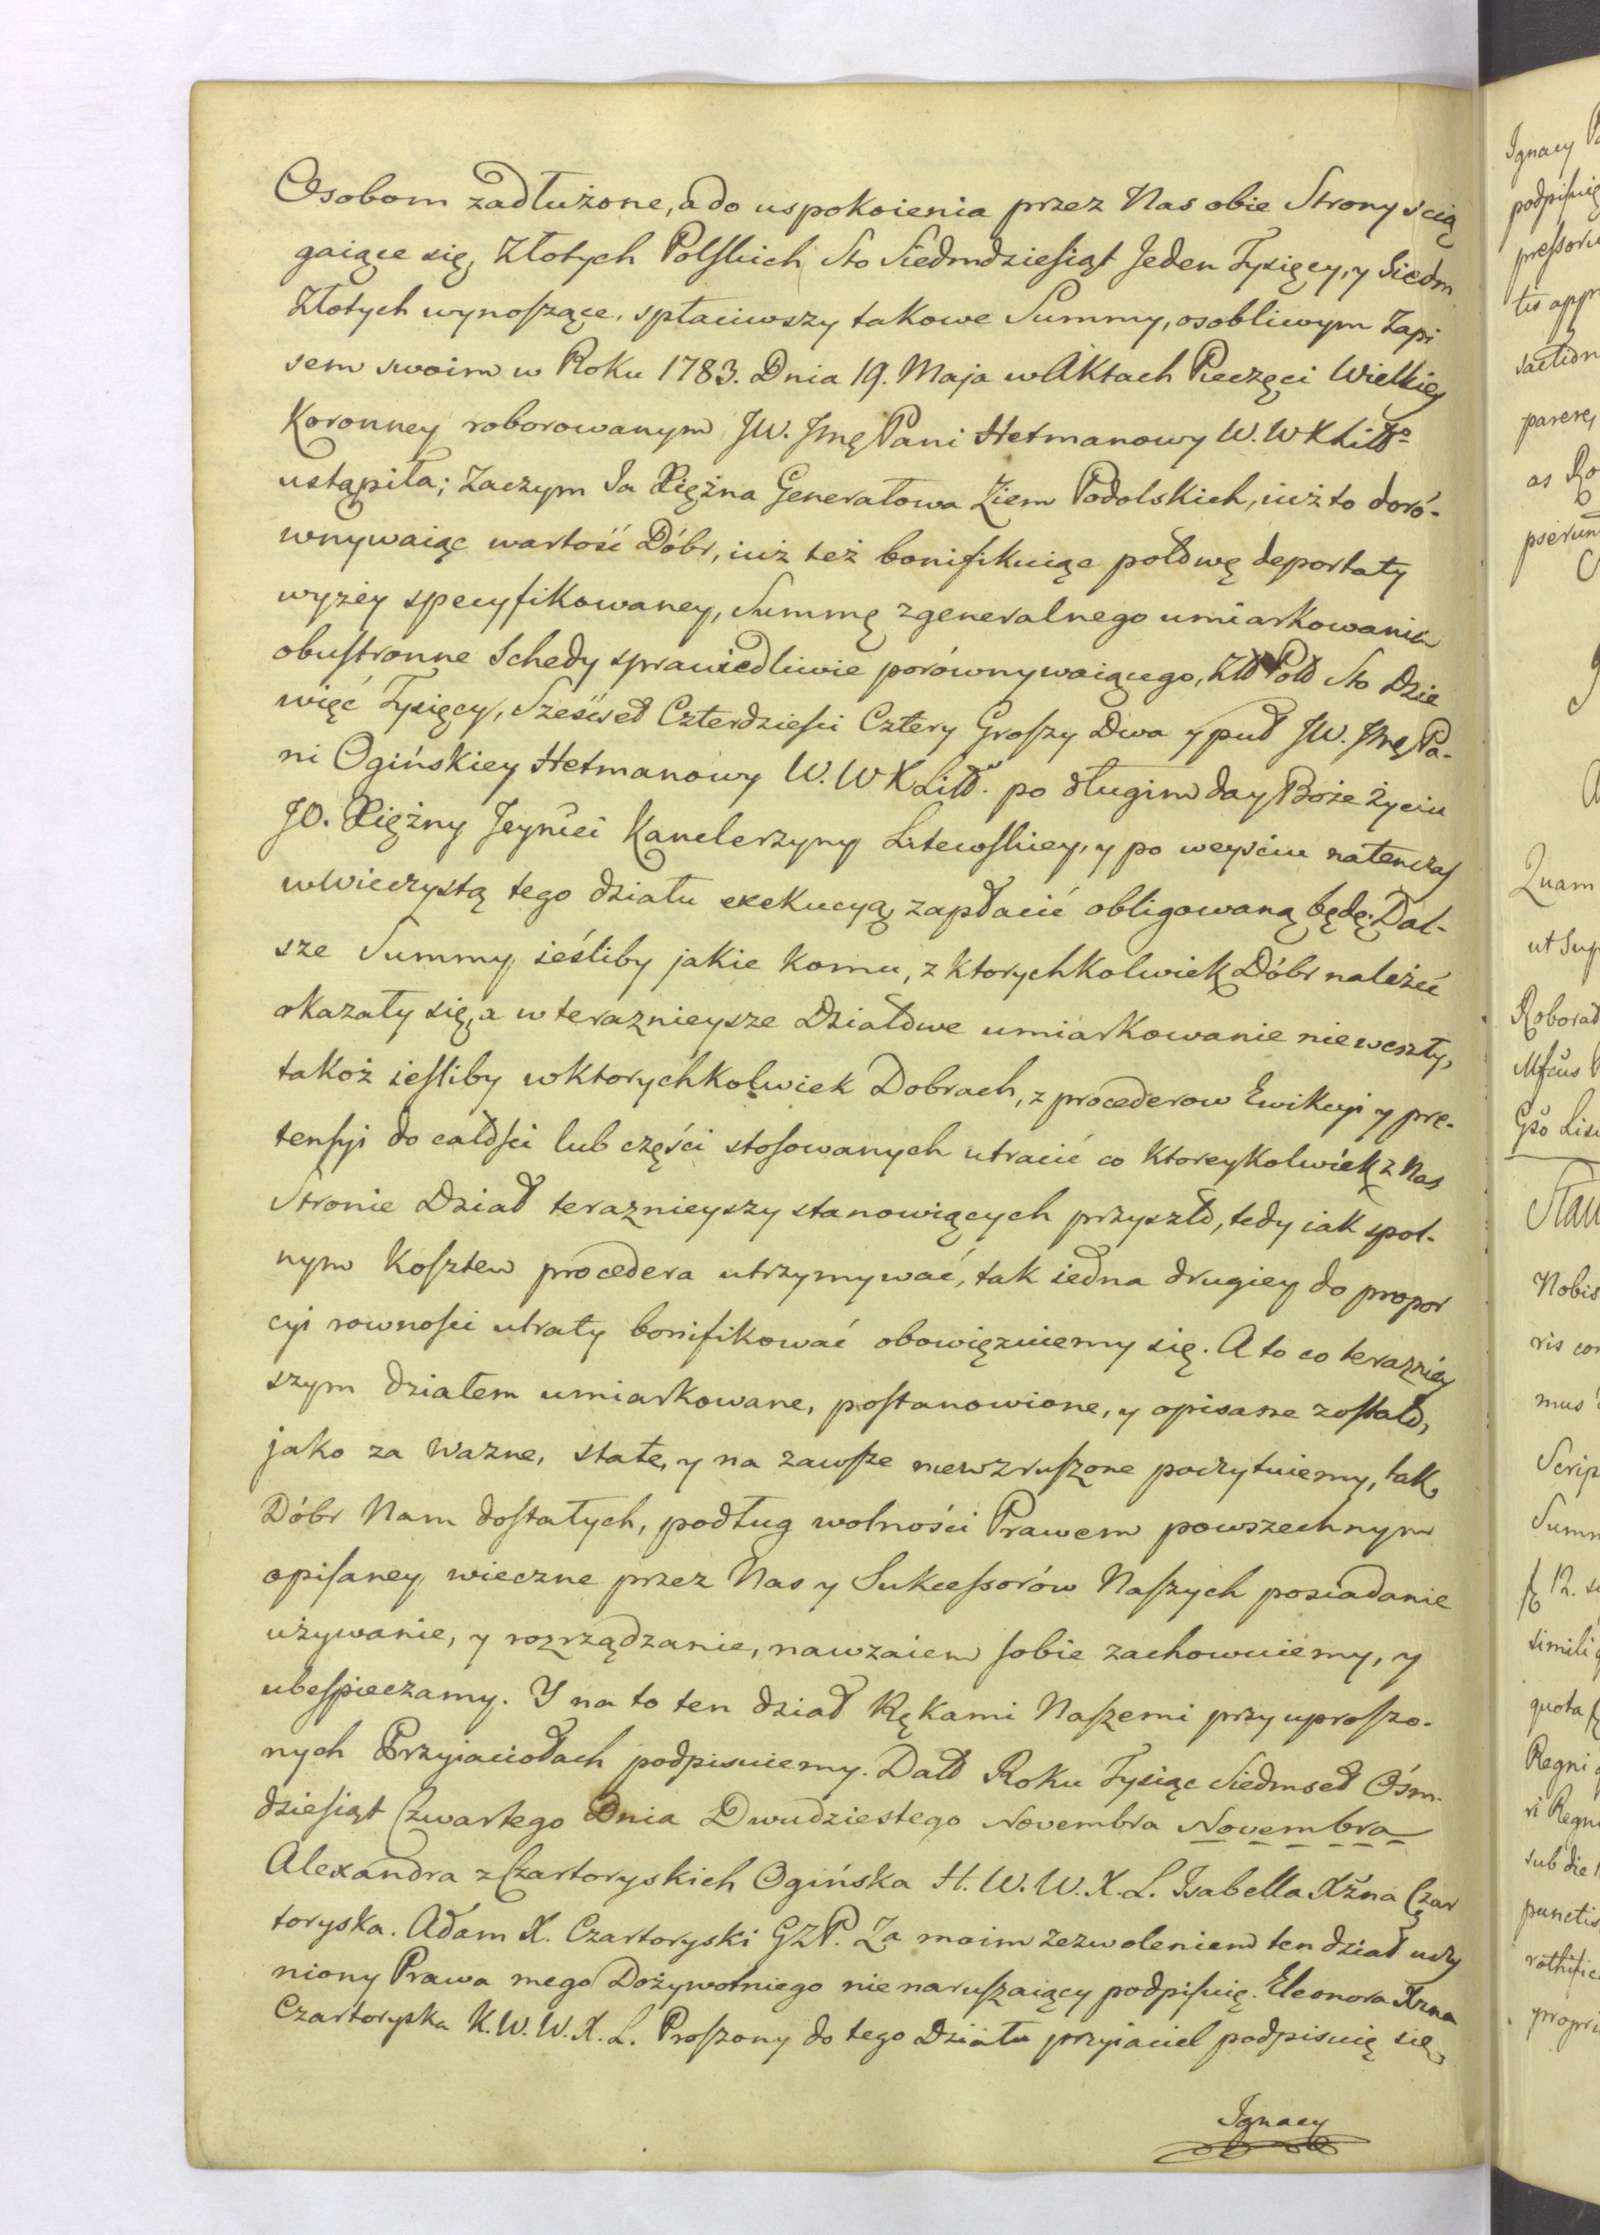 Osobom zadłużone, a do uspokoienia przez Nas obie Strony ścią
gaiące się, Złotych Polskich Sto Siedmdziesiąt Jeden Tysięcy, y Siedm
Złotych wynoszące, spłaciwszy takowe Summy, osobliwym Zapi
sem swoim w Roku 1783. Dnia 19. Maja w Aktach Pieczęci Wielkiey
Koronney roborowanym JW. Jmę Pani Hetmanowy W. W X Litto
ustąpiła; Zaczym Ia Xiężna Generałowa Ziem Podolskich, iuż to doró-
wnywaiąc wartość Dóbr, iuż też bonifikuiąc połowę deportaty
wyżey specyfikowaney, Summę z generalnego umiarkowania
obustronne Schedy sprawiedliwie porównywaiącego, Złł Poll Sto Dzie
więć Tysięcy, Sześćset Czterdzieści Cztery Groszy Dwa y puł JW. Jmę Pa-
ni Ogińskiey Hetmanowy W. W X Litt. po długim day Boże życiu
JO. Xiężny Jeymći Kanclerzyny Litewskiey, y po weyściu natenczas
w wieczystą tego działu exekucyą, zapłacić obligowaną będę. Dal-
sze Summy ieśliby jakie komu, z ktorychkolwiek Dóbr należeć
okazały się, a w teraznieysze Działowe umiarkowanie nieweszły,
takoż iesliby w ktorychkolwiek Dobrach, z procederow Ewikcyi y pre-
tensyi do całości lub części stosowanych utracić co ktoreykolwiek z Nas
Stronie Dział teraznieyszy stanowiących przyszło, tedy iak spol-
nym kosztem procedera utrzymywać, tak iedna drugiey do propor
cyi rownosci utraty bonifikować obowięzuiemy się. A to co terazniey
szym działem umiarkowane, postanowione, y opisane zostało,
jako za wazne, stałe, y na zawsze niewzruszone poczytuiemy, tak
Dóbr Nam dostałych, podług wolności Prawem powszechnym
opisaney wieczne przez Nas y Sukcessorów Naszych posiadanie
używanie, y rozrządzanie, nawzaiem sobie zachowuiemy, y
ubespieczamy. Y na to ten dział Rękami Naszemi przy uproszo-
nych Przyiaciołach podpisuiemy. Datt Roku Tysiąc Siedmset Ośm-
dziesiąt Czwartego Dnia Dwudziestego Novembra Novembra
Alexandra z Czartoryskich Ogińska H. W. W. X. L. Isabella Xżna Czar
toryska. Adam X. Czartoryski GZP. Za moim zezwoleniem ten dział uczy
niony Prawa mego Dożywotniego nie naruszaiący podpisuię. Eleonora Xzna
Czartoryska K. W. W. X. L. Proszony do tego Działu przyiaciel podpisuię się,
Ignacy